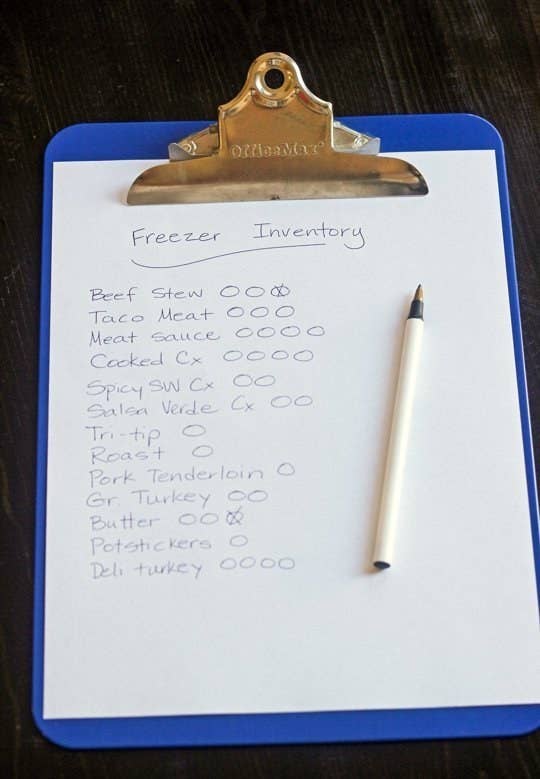 OfficeMax
Freezer Inventory
Beef Stew
Taco Meat
Meat sauce
Cooked Cx
Spicy SW Cx
Salsa Verde Cx
Tri-tip
Roast
Pork Tenderloin
Gr. Turkey
Butter
Potstickers
Deli turkey